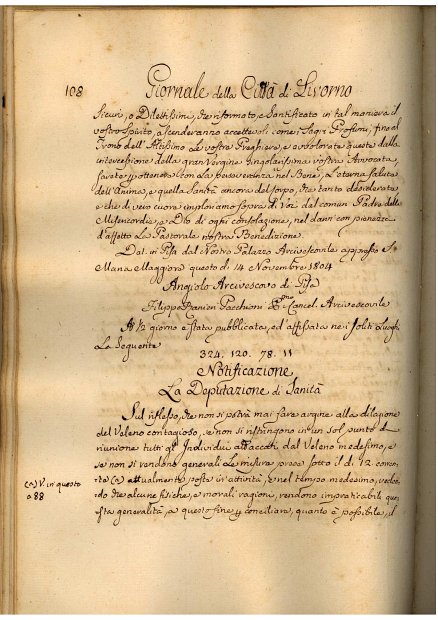 108 Giornale della Città di Livorno
Sicuri, o Dilettissimi, che riformato, e Santificato in tal maniera il
vostro Spirito, ascenderanno accettevoli come i Sagri Profumi, fino al
Trono dell'Altissimo le vostre Preghiere, e avvalorate queste dalla
intercessione della gran Vergine Singolarissima vostra Avvocata,
farete, ed otterrete con la perseveranza nel Bene, l'eterna salute
dell'Anima, e quella Sanità ancora del Corpo, che tanto desiderate
e che di vero cuore imploriamo sopra di Voi dal comun Padre delle
Misericordie, e Dio di ogni consolazione, nel darvi con pienezza
d'affetto la Pastorale nostra Benedizione.
Dat. in Pisa dal Nostro Palazzo Arcivescovile appresso S.
Maria Maggiore questo dì 14 Novembre 1804
Angiolo Arcivescovo di Pisa
Filippo Ranieri Pacchiani Cancel. Arcivescovile
giorno è stata pubblicata, ed affissata nei soliti Luoghi
La Seguente
324. 120. 78. 11
Notificazione
La Deputazione di Sanità
Sul riflesso, che non si potrà mai fare argine alla dilazione
del Veleno contagioso, se non si ristringono in un sol punto di
riunione tutti gl'Individui attaccati dal Veleno medesimo, e
se non si rendono generali le misure prese sotto il dì 12 corren-
te (a) attualmente poste in attività, e nel tempo medesimo, veden-
do che alcune fisiche, e morali ragioni, rendono impraticabile que-
sta generalità, a questo fine per conciliare, quanto è possibile, il
(a) V. in questo
a 88